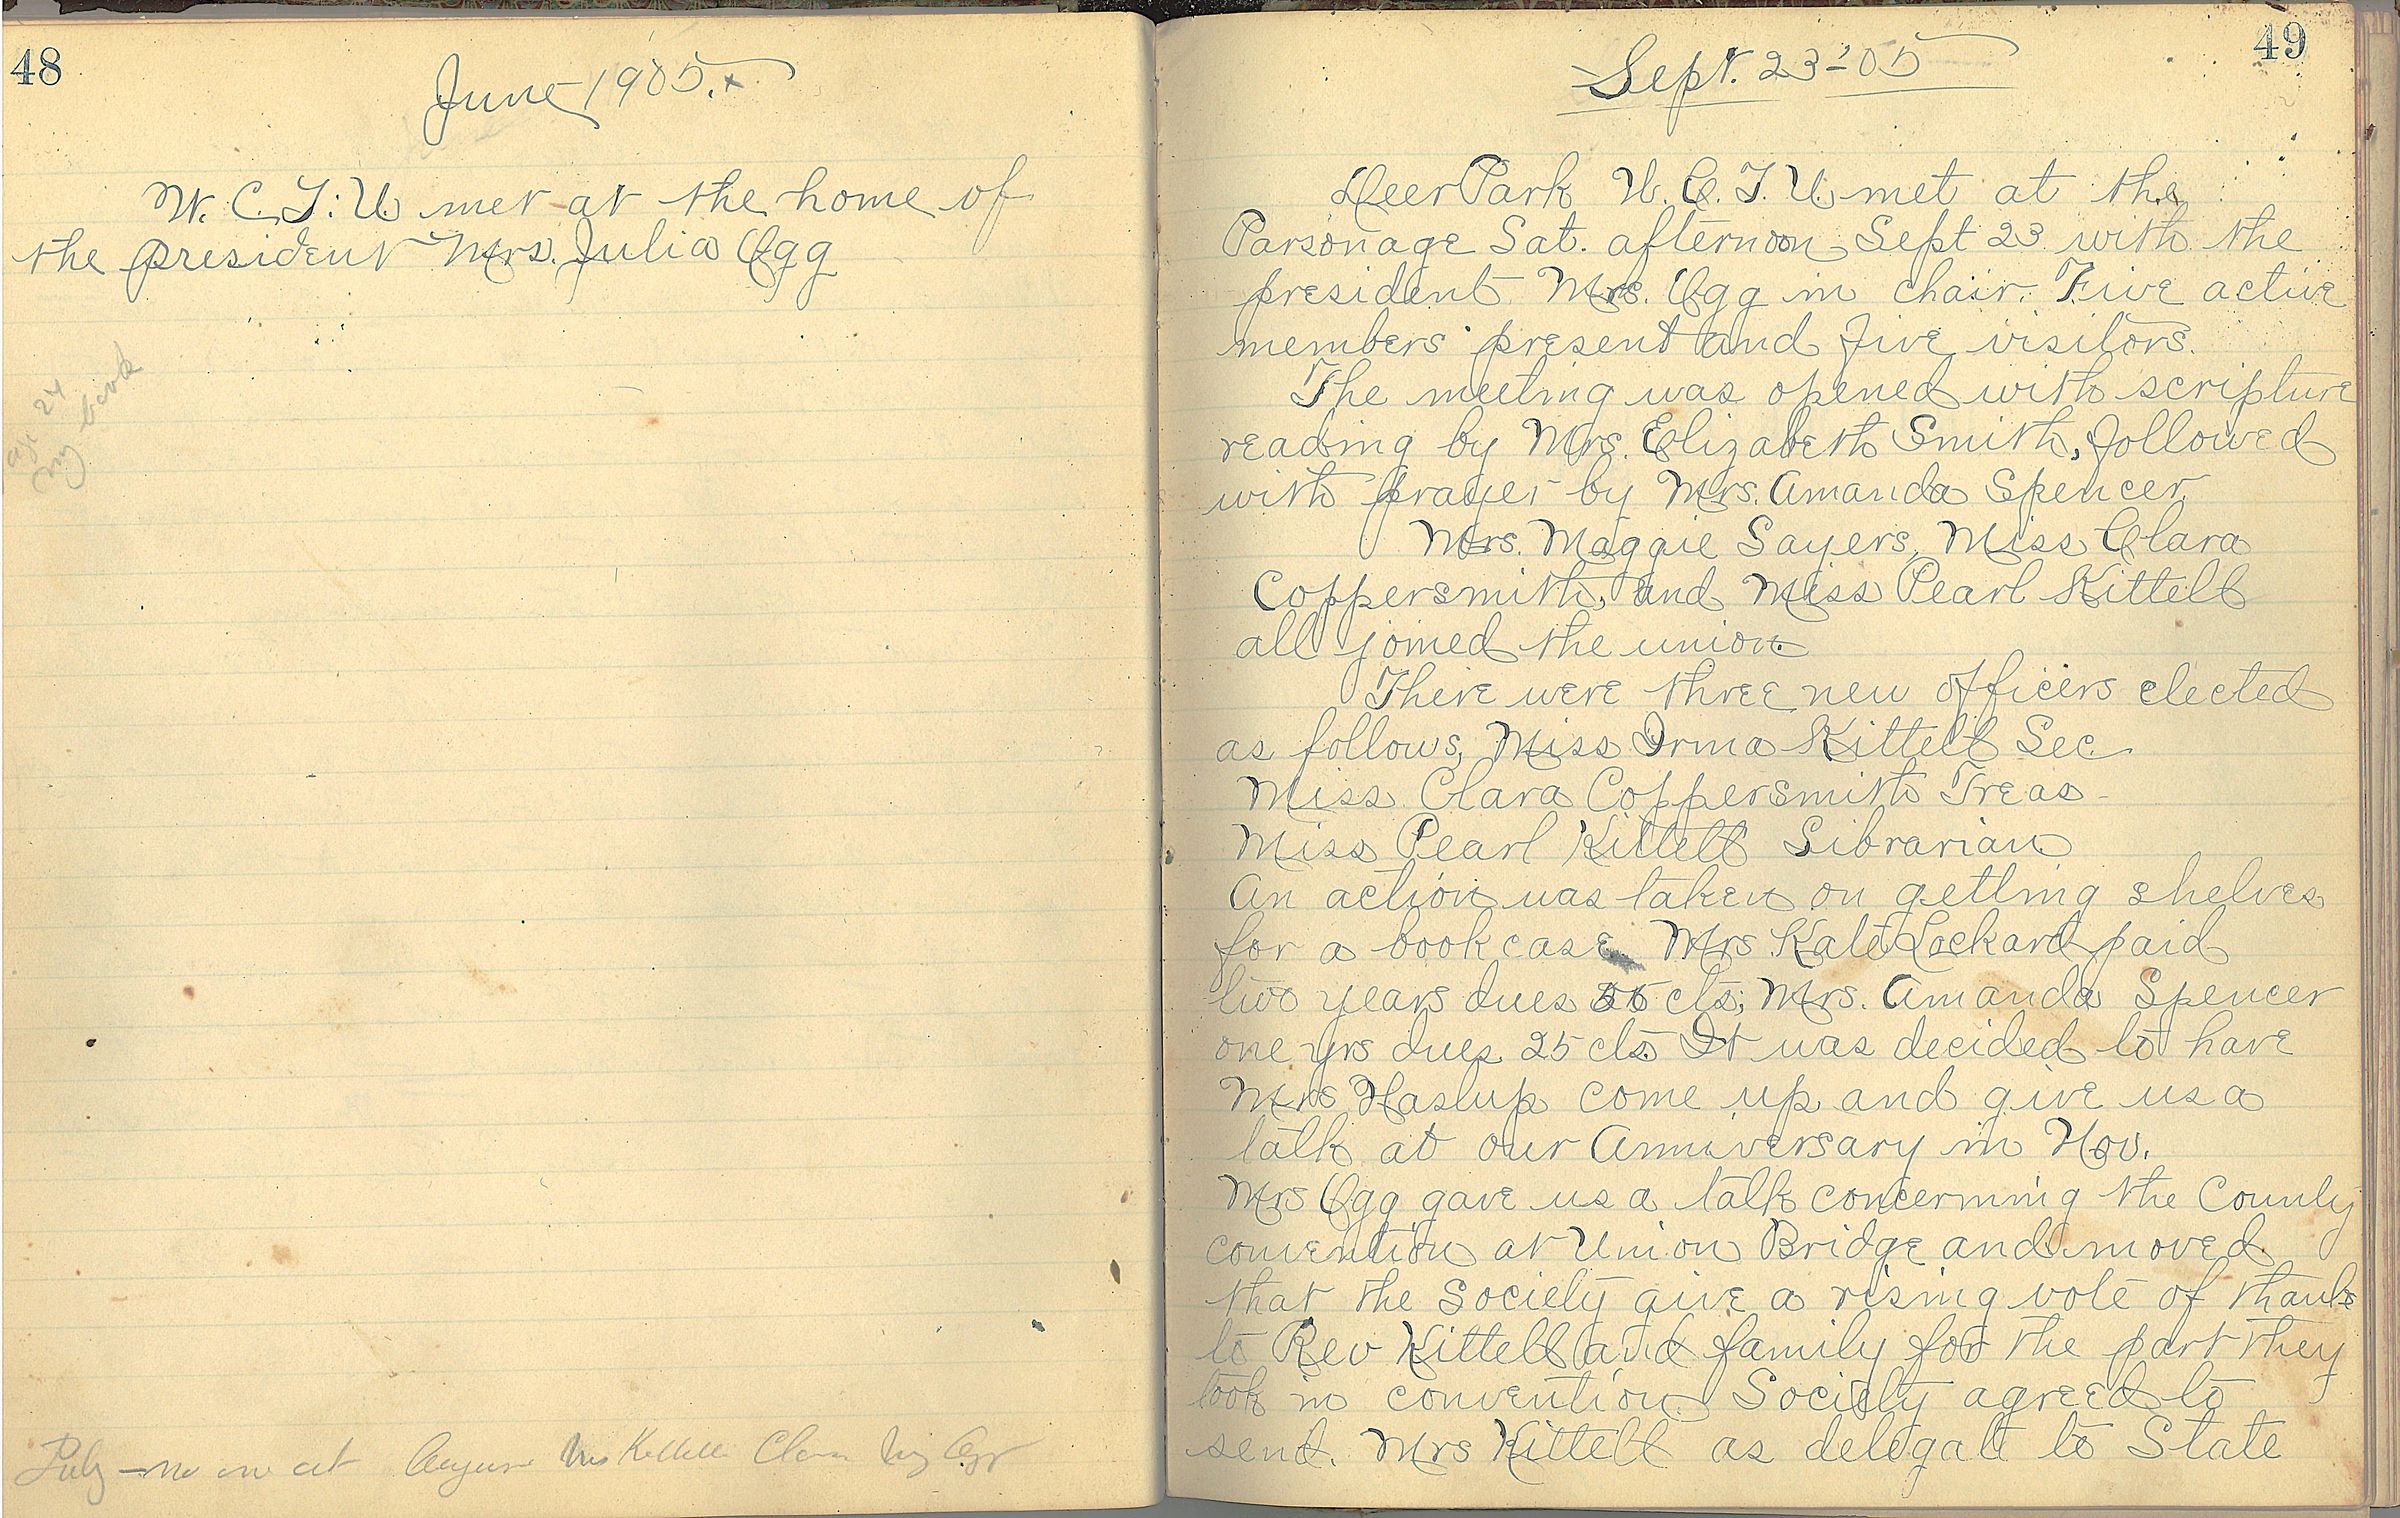 48
June 1905. x
W. C. T. U. met at the home of
the president Mrs. Julia Ogg
24
my book
July - no one at August Mrs Kittell Clara
49
Sept. 23-'05
Deer Park W. C. T. U. met at the
Parsonage Sat. afternoon Sept 23 with the
president Mrs. Ogg in chair. Five active
members present and five visitors.
The meeting was opened with scripture
reading by Mrs. Elizabeth Smith, followed
with prayer by Mrs. Amanda Spencer.
Mrs. Maggie Sayers, Miss Clara
Coppersmith, and Miss Pearl Kittell
all joined the union.
There were three new officers elected
as follows, Miss Irma Kittell Sec.
Miss Clara Coppersmith Treas-
Miss Pearl Kittell Librarian
An action was taken on getting shelves
for a book case Mrs Kate Lockard paid
two years dues cts; Mrs. Amanda Spencer
one yrs dues 25 cts. It was decided to have
Mrs Haslup come up and give us a
talk at our Anniversary in Nov.
Mrs Ogg gave us a talk concerning the County
convention at Union Bridge and moved
that the Society give a rising vote of thanks
to Rev Kittell and family for the part they
took in convention. Society agreed to
send. Mrs Kittell as delegate to State